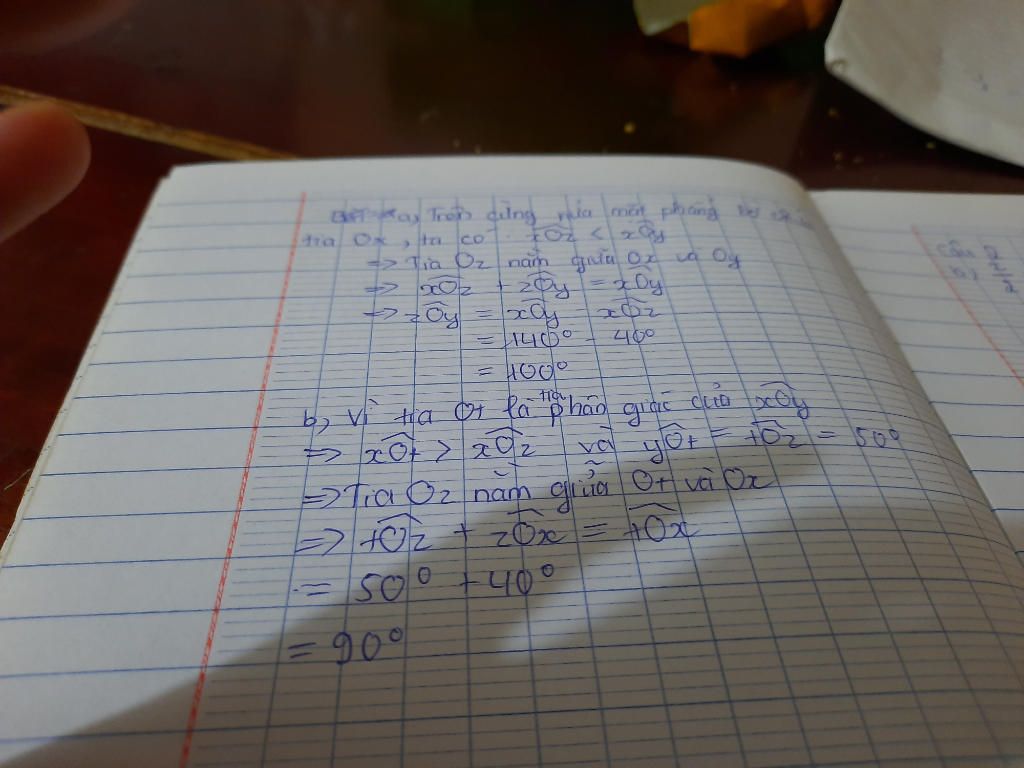 a, Trên cùng nửa mặt phẳng bờ
tia Ox, ta có xOz < xOy
=> Tia Oz nằm giữa Ox và Oy
=> xOz + zOy = xOy
=> zOy = xOy - xOz
= 140° - 40°
= 100°
b, Vì tia Ot là tia phân giác của xOy
=> xOt > xOz và yOt = tOz = 50°
=> Tia Oz nằm giữa Ot và Ox
=> tOz + zOx = tOx
= 50° + 40°
= 90°
Câu 2